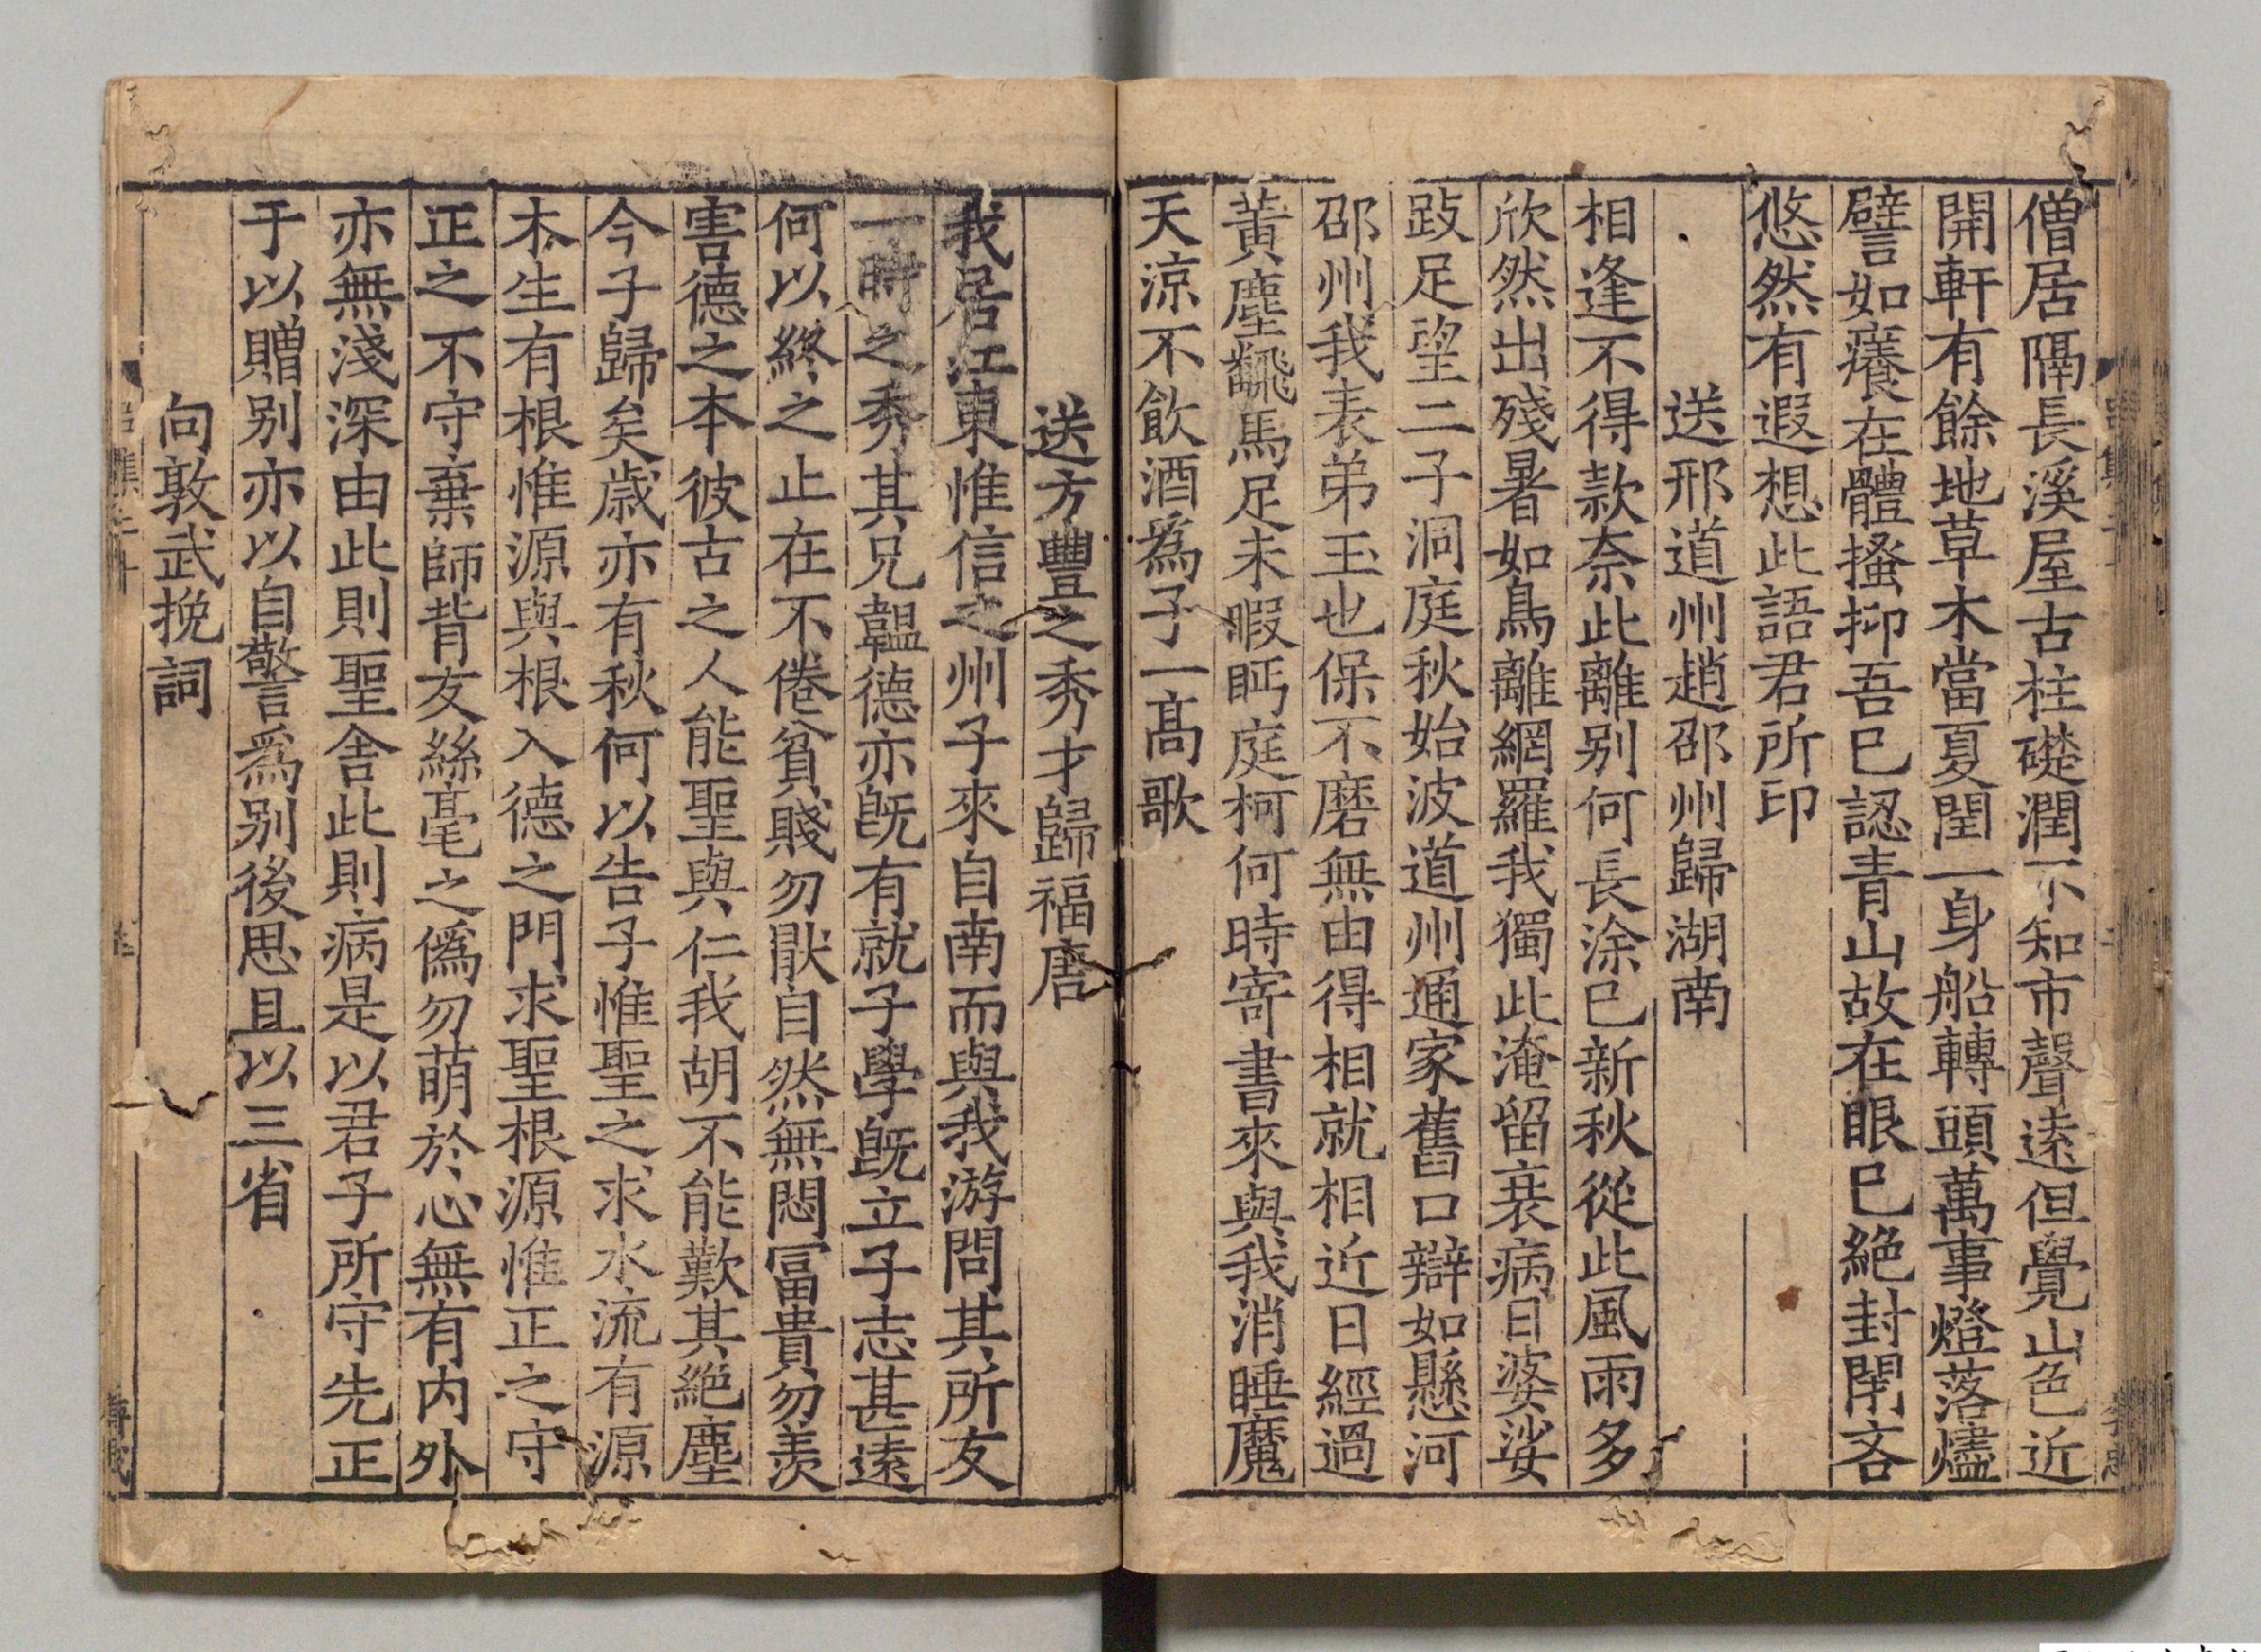 僧居隔長溪屋古柱礎潤不知市聲遠但覺山色近
開軒有餘地草木當夏閏一身船轉頭萬事燈落燼
譬如癢在體搔抑吾已認青山故在眼已絕封閉吝
悠然有遐想此語君所印
送邢道州趙邵州歸湖南
相逢不得款奈此離别何長涂已新秋從此風雨多
欣然出殘暑如鳥離網羅我獨此淹留衰病日婆娑
跂足望二子洞庭秋始波道州通家舊口辯如懸河
邵州我表弟玉也保不磨無由得相就相近日經過
黃塵飜馬足未暇眄庭柯何時寄書來與我消睡魔
天涼不飲酒爲子一髙歌
送方豐之秀才歸福唐
我居江東惟信之州子來自南而與我游問其所友
一時之秀其兄韞德亦旣有就子學旣立子志甚遠
何以終之止在不倦貧賤勿猒自然無悶冨貴勿羨
害德之本彼古之人能聖與仁我胡不能歎其絶塵
今子歸矣歳亦有秋何以告子惟聖之求水流有源
木生有根惟源與根入德之門求聖根源惟正之守
正之不守棄師背友絲毫之僞勿萌於心無有内外
亦無淺深由此則聖舍此則病是以君子所守先正
于以贈别亦以自警爲别後思且以三省
向敦武挽詞